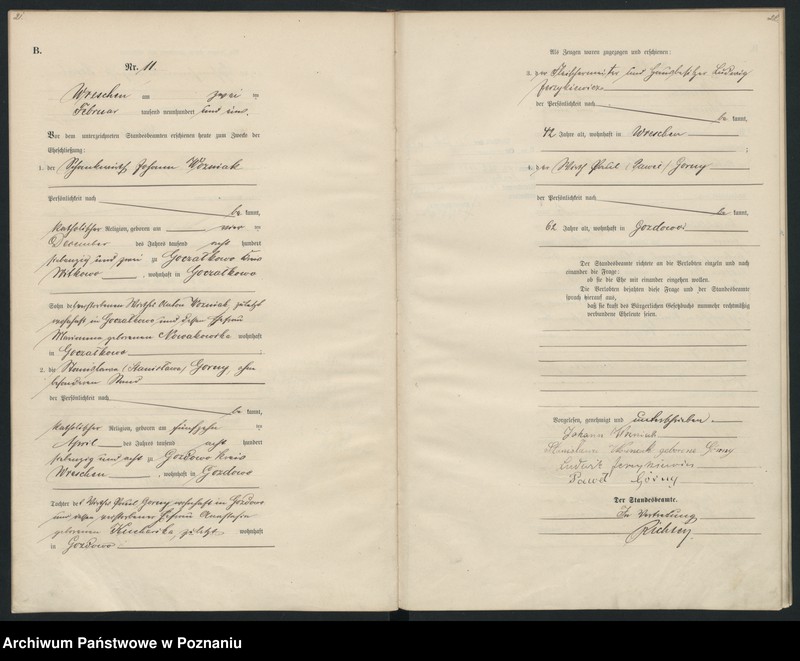 21.
B.
Nr. 11.
Wreschen am zwei ten
Februar tausend neunhundert und eins.
Vor dem unterzeichneten Standesbeamten erschienen heute zum Zwecke der
Eheschließung:
1. der Schankwirth Johann Wozniak
der Persönlichkeit nach
be kannt,
katholischer Religion, geboren am vier ten
Dezember des Jahres tausend acht hundert
siebenzig und zwei zu Goczalkowo Kreis
Witkowo, wohnhaft in Goczalkowo
Sohn des verstorbenen Wirths Anton Wozniak, zuletzt
wohnhaft in Goczalkowo und dessen Ehefrau
Marianna geborenen Nowakowska wohnhaft
in Goczalkowo
2. die Stanislawa (Stanisława) Gorny, ohne
besonderen Stand
der Persönlichkeit nach
be kannt,
katholischer Religion, geboren am fünfzehn ten
April des Jahres tausend acht hundert
siebenzig und acht zu Gozdowo Kreis
Wreschen, wohnhaft in Gozdowo
Tochter des Wirths Paul Gorny wohnhaft in Gozdowo
und dessen verstorbener Ehefrau Anastasia
geborenen Kucharska, zuletzt wohnhaft
in Gozdowo
Als Zeugen waren zugezogen und erschienen:
3. der Fleischermeister und Hausbesitzer Ludwig
Jerzykiewicz
der Persönlichkeit nach
be kannt,
42 Jahre alt, wohnhaft in Wreschen
;
4. der Wirth Paul (Paweł) Gorny
der Persönlichkeit nach
be kannt,
62 Jahre alt, wohnhaft in Gozdowo
Der Standesbeamte richtete an die Verlobten einzeln und nach
einander die Frage:
ob sie die Ehe mit einander eingehen wollen.
Die Verlobten bejahten diese Frage und der Standesbeamte
sprach hierauf aus,
daß sie kraft des Bürgerlichen Gesetzbuchs nunmehr rechtmäßig
verbundene Eheleute seien.
Vorgelesen, genehmigt und unterschrieben
Johann Wozniak
Stanislawa Wozniak geborene Gorny
Ludwik Jerzykiewicz
Paweł Górny
Der Standesbeamte.
In Vertretung
Richter
Archiwum Państwowe w Poznaniu